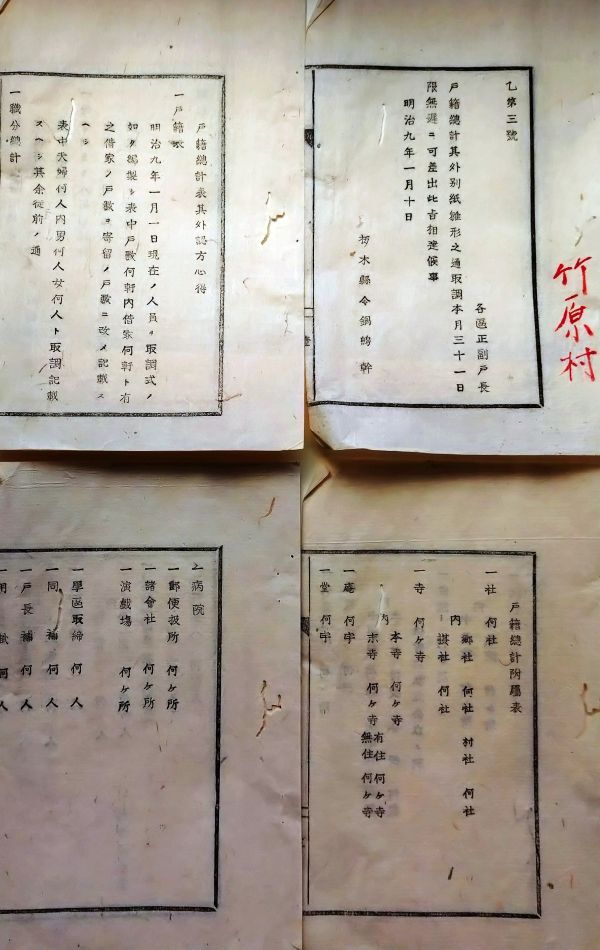 竹原村
乙第三號
各區正副戸長
戸籍總計其外別紙雛形之通取調本月三十一日
限無遲ニ可差出此旨相達候事
明治九年一月十日
栃木縣令鍋島幹
戸籍總計表其外認方心得
一戸籍表
明治九年一月一日現在ノ人員ヲ取調式ノ
如ク編製シ表中戸數何軒内借家何軒ト有
之借家ノ戸數ヲ寄留ノ戸數ニ改メ記載ス
ヘシ
表中夫婦何人内男何人女何人ト取調記載
スヘシ其余従前ノ通
一職分總計
戸籍總計附屬表
一社 何社
内 郷社 何社 村社 何社
社 何社
一寺 何ケ寺
内 本寺 何ケ寺
末寺 何ケ寺 有住 何ケ寺
無住 何ケ寺
一庵 何宇
一堂 何宇
一病院
一郵便扱所 何ケ所
一諸會社 何ケ所
一演戲塲 何ケ所
一學區取締 何人
一同 補 何人
一戸長補 何人
一用 何人